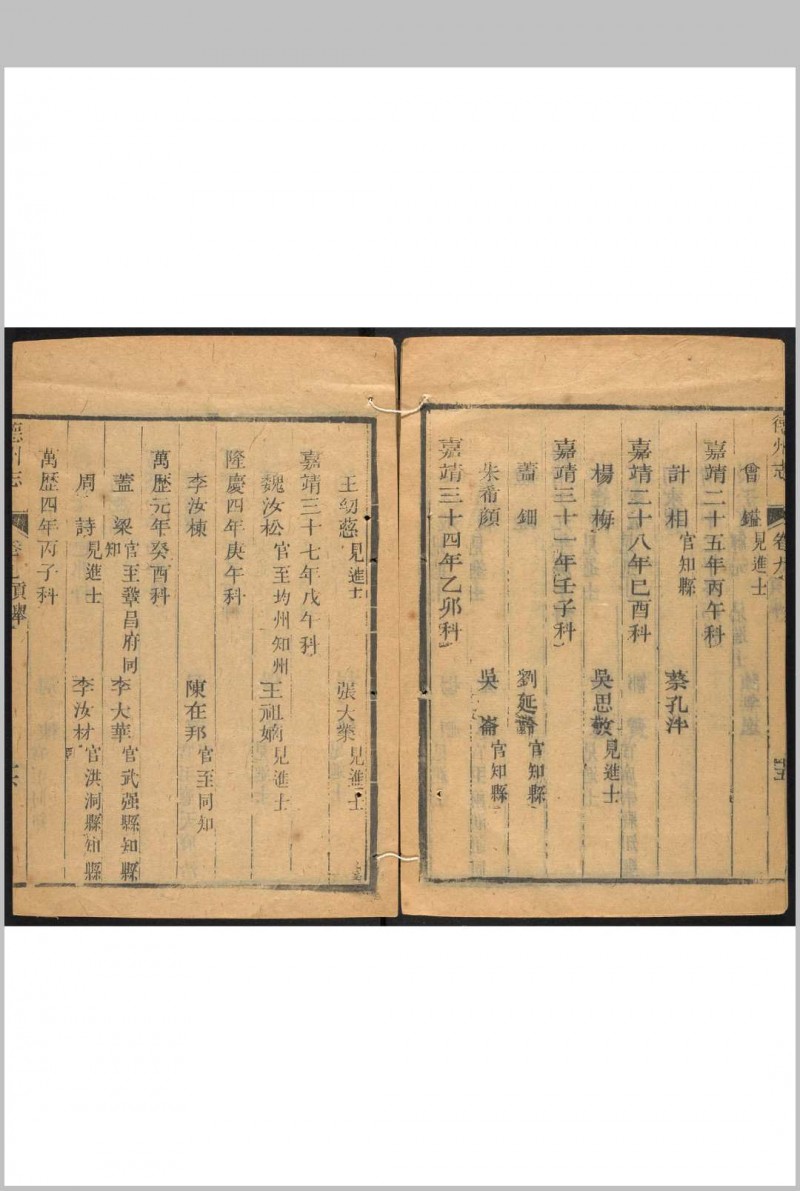 德州志 卷九 貢舉 十五
曾鎰 見進士
嘉靖二十五年丙午科
計相 官知縣 蔡孔泮
嘉靖二十八年己酉科
楊梅 吳思敬 見進士
嘉靖三十一年壬子科
蓋鈿 劉延齡 官知縣
朱希顏 吳崙 官知縣
嘉靖三十四年乙卯科
王幼慈 見進士 張大業 見進士
嘉靖三十七年戊午科
魏汝松 官至均州知州 王祖嫡 見進士
隆慶四年庚午科
李汝棟 陳在邦 官至同知
萬歷元年癸酉科
蓋梁 官至鞏昌府同知 李大華 官武强縣知縣
周詩 見進士 李汝材 官洪洞縣知縣
萬歷四年丙子科
德州志 卷九 貢舉